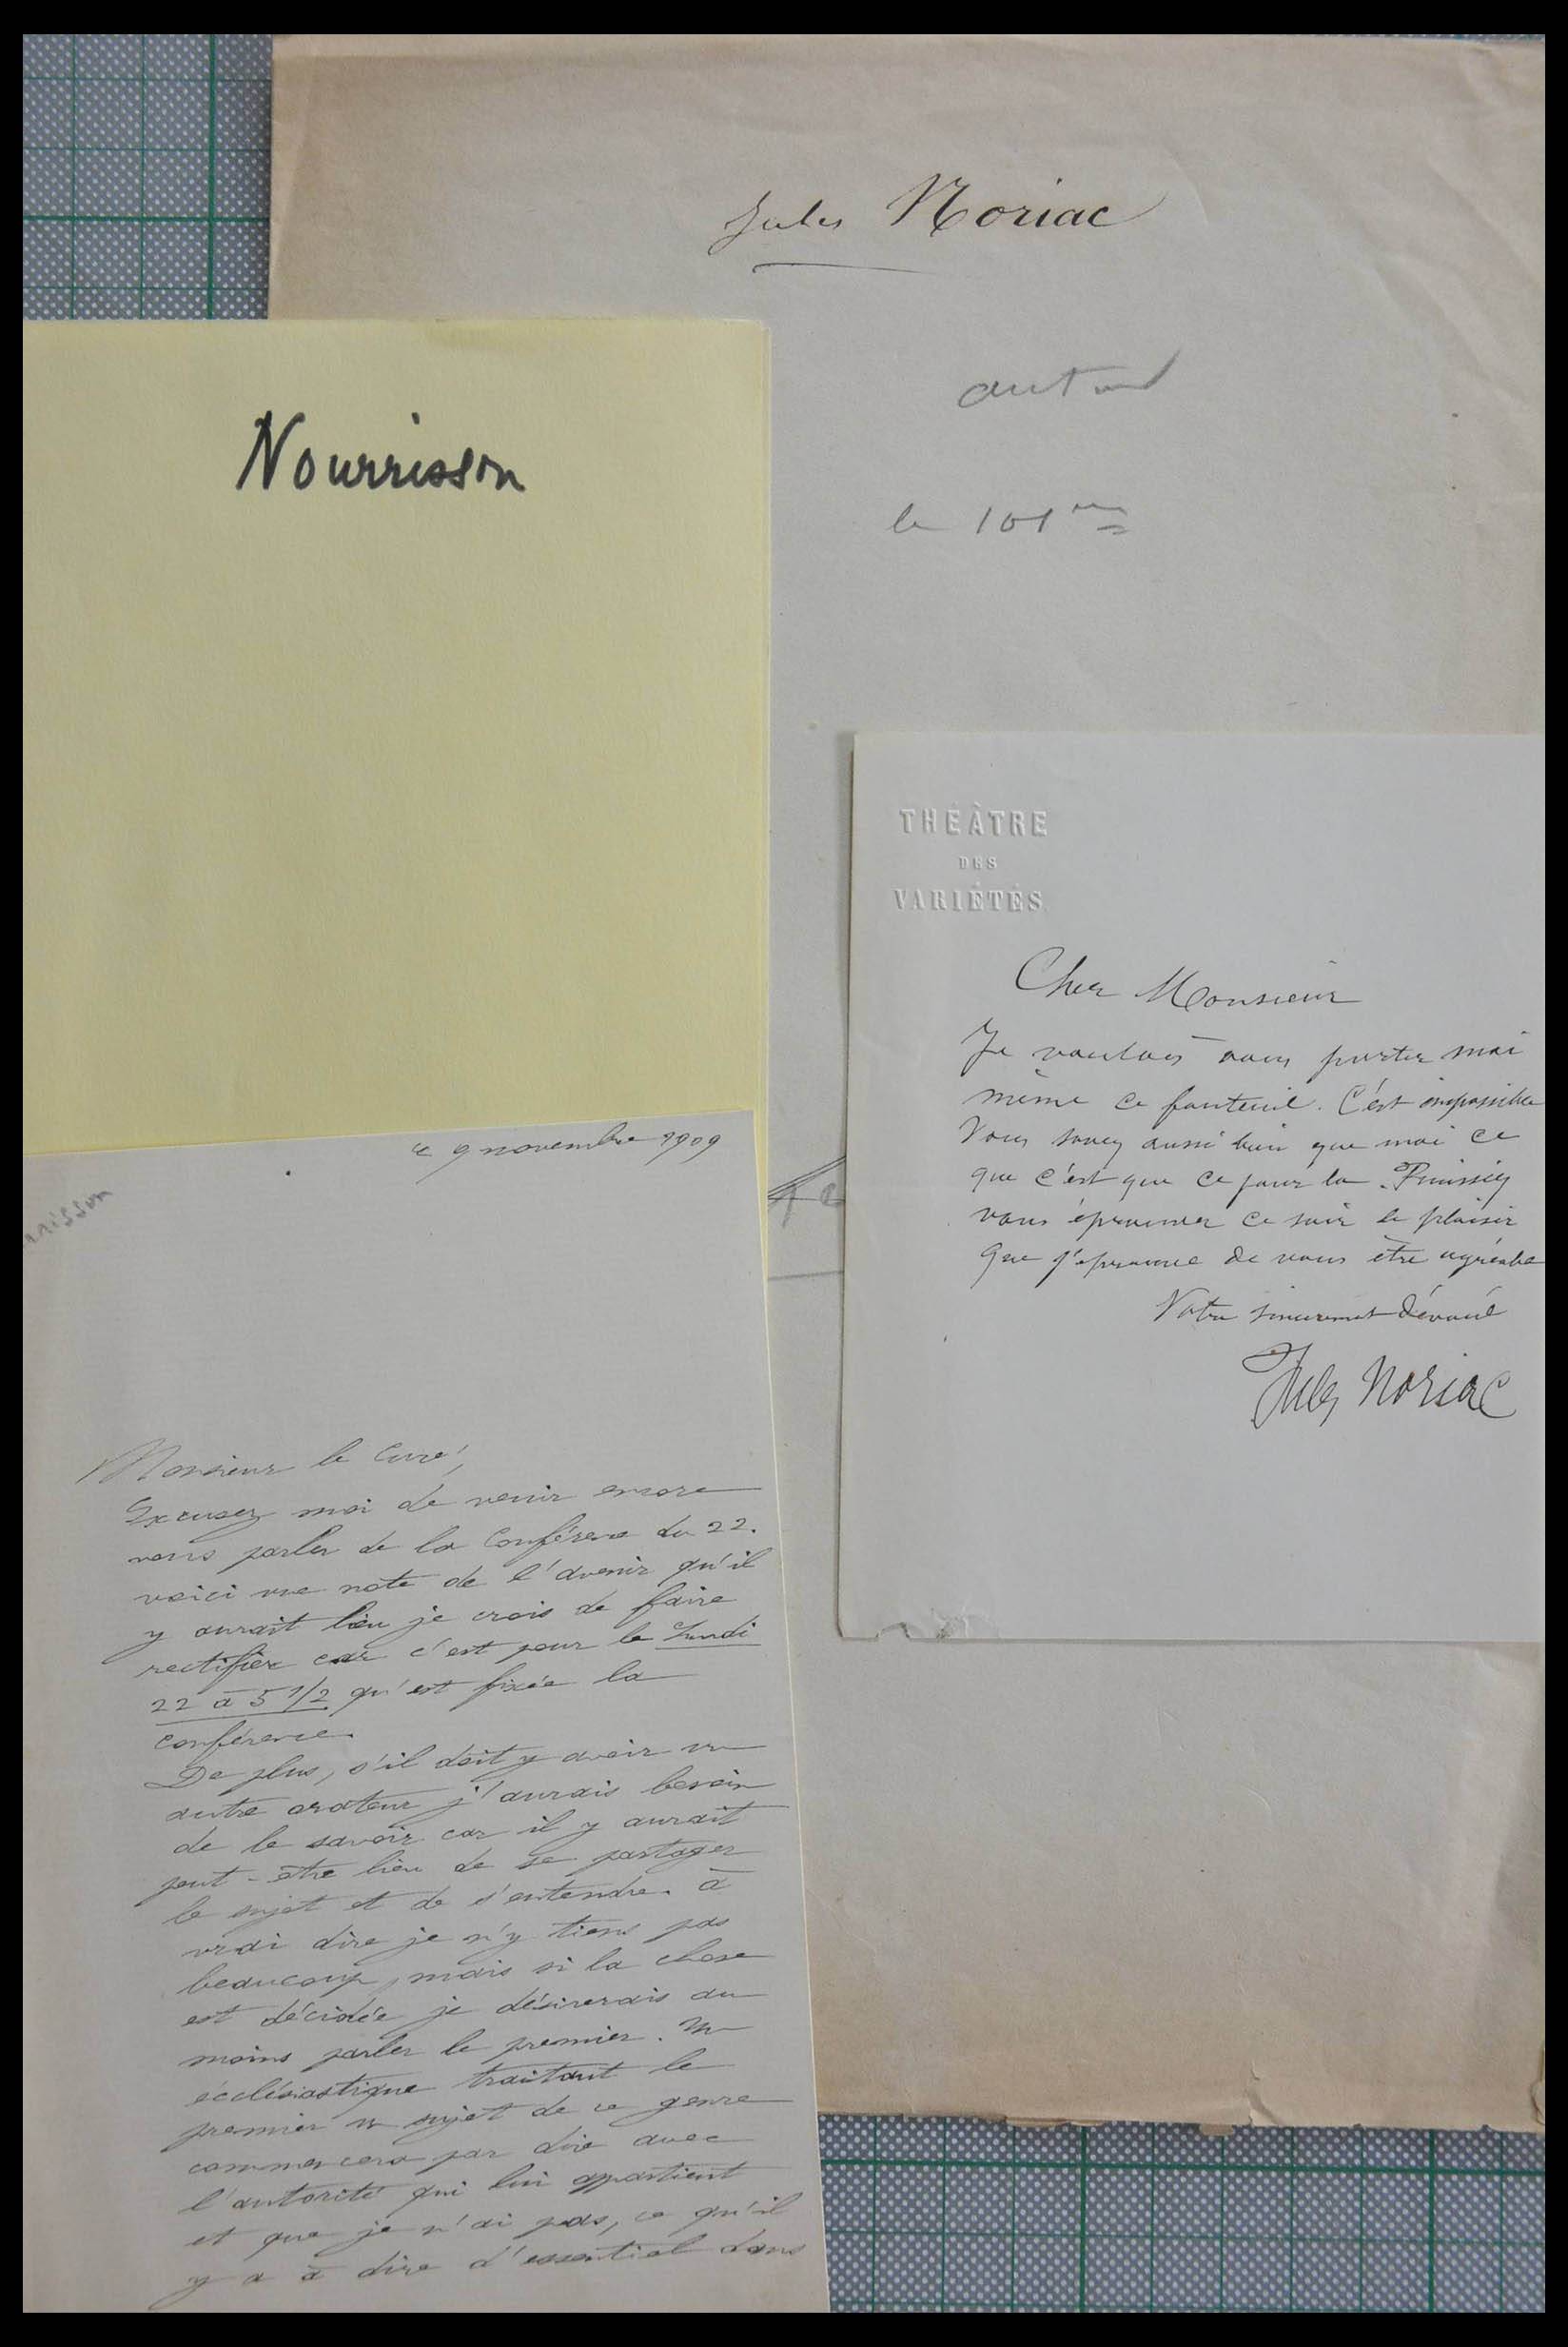 Jules Noriac
auteur
le 101me
Nourrisson
THÉÂTRE
DES
VARIÉTÉS
Cher Monsieur
Je voulais vous porter moi
même ce fauteuil. C'est impossible
Vous savez aussi bien que moi ce
que c'est que ce jour là. Puissiez
vous éprouver ce soir le plaisir
que j'éprouve de vous être agréable
Votre sincèrement dévoué
Jules Noriac
le 9 novembre 1909
Monsieur le Curé,
Excusez moi de venir encore
vous parler de la Conférence du 22.
voici une note de l'avenir qu'il
y aurait lieu je crois de faire
rectifier car c'est pour le Lundi
22 à 5 1/2 qu'est fixée la
conférence.
De plus, s'il doit y avoir un
autre orateur j'aurais besoin
de le savoir car il y aurait
peut-être lieu de se partager
le sujet et de s'entendre. à
vrai dire je n'y tiens pas
beaucoup, mais si la chose
est décidée je désirerais au
moins parler le premier. Un
écclésiastique traitant le
premier un sujet de ce genre
commencera par dire avec
l'autorité qui lui appartient
et que je n'ai pas, ce qu'il
y a à dire d'essentiel dans